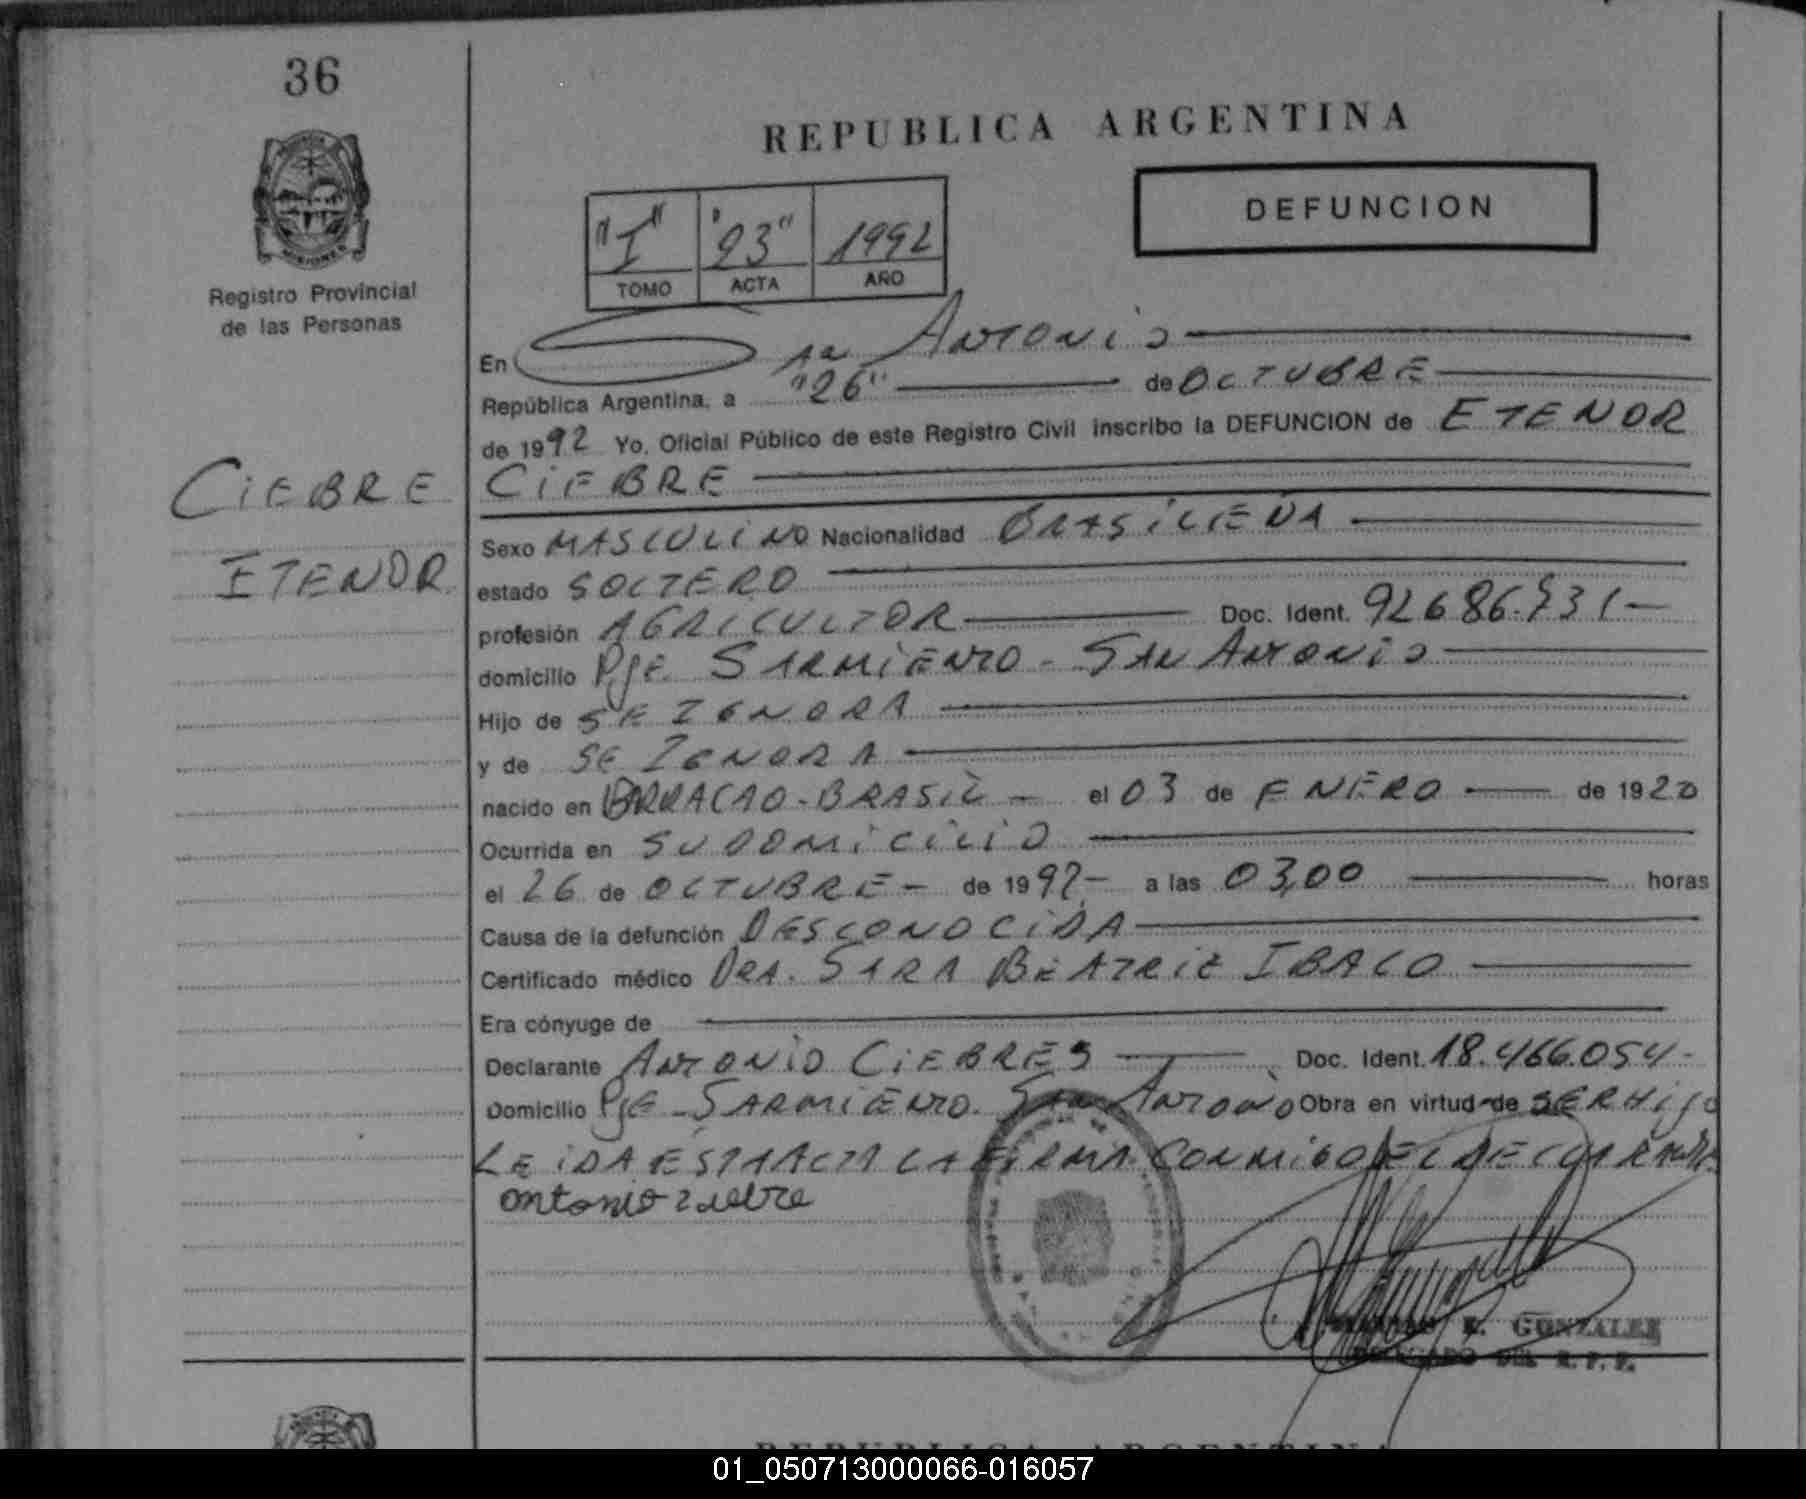 36
REPUBLICA ARGENTINA
DEFUNCION
"I" "93" 1992
TOMO ACTA AÑO
MISIONES
Registro Provincial
de las Personas
En San Antonio
República Argentina, a "26" de OCTUBRE
de 1992 Yo, Oficial Público de este Registro Civil inscribo la DEFUNCION de ETENOR
CIEBRE
CIEBRE
ETENOR
Sexo MASCULINO Nacionalidad BRASILEÑA
estado SOLTERO
profesión AGRICULTOR Doc. Ident. 92686.731
domicilio Pje. SARMIENTO - SAN ANTONIO
Hijo de SE IGNORA
y de SE IGNORA
nacido en BARRACAO - BRASIL - el 03 de ENERO de 1920
Ocurrida en SU DOMICILIO
el 26 de OCTUBRE - de 1992 - a las 03,00 horas
Causa de la defunción DESCONOCIDA
Certificado médico DRA. SARA BEATRIZ IBACO
Era cónyuge de
Declarante ANTONIO CIEBRES Doc. Ident. 18.466.054-
Domicilio Pje SARMIENTO. San Antonio Obra en virtud de SER Hijo
LEIDA ESTA ACTA LA FIRMA CONMIGO EL DECLARANTE
antonio
GONZALEZ
DEL R. P. P.
REPUBLICA ARGENTINA
01_050713000066-016057